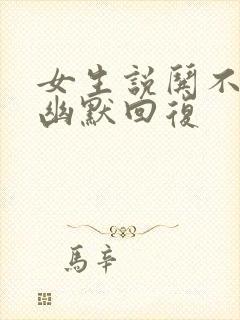 女生説不
幽默回復
馬辛